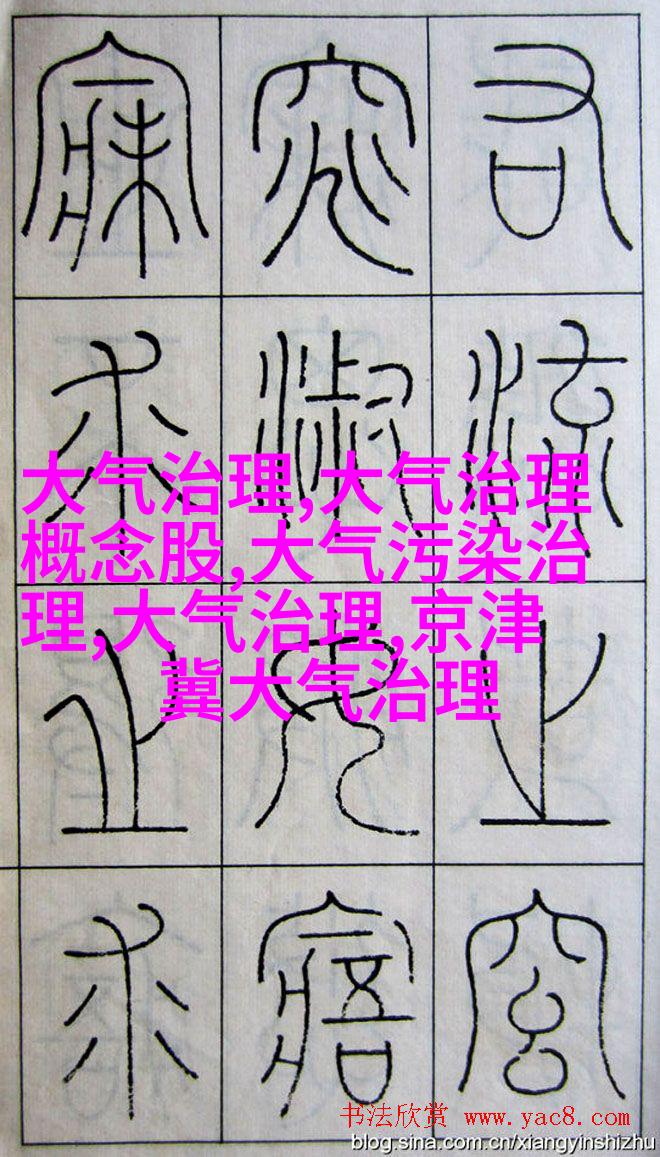 右流之窈
窕淑女寤
寐求之求
大气治理,大气治理
概念股,大气污染治
理,大气治理,京津
冀大气治理
书法欣赏 www.yac8.com
blog.sina.com.cn/xiangyinshizhu